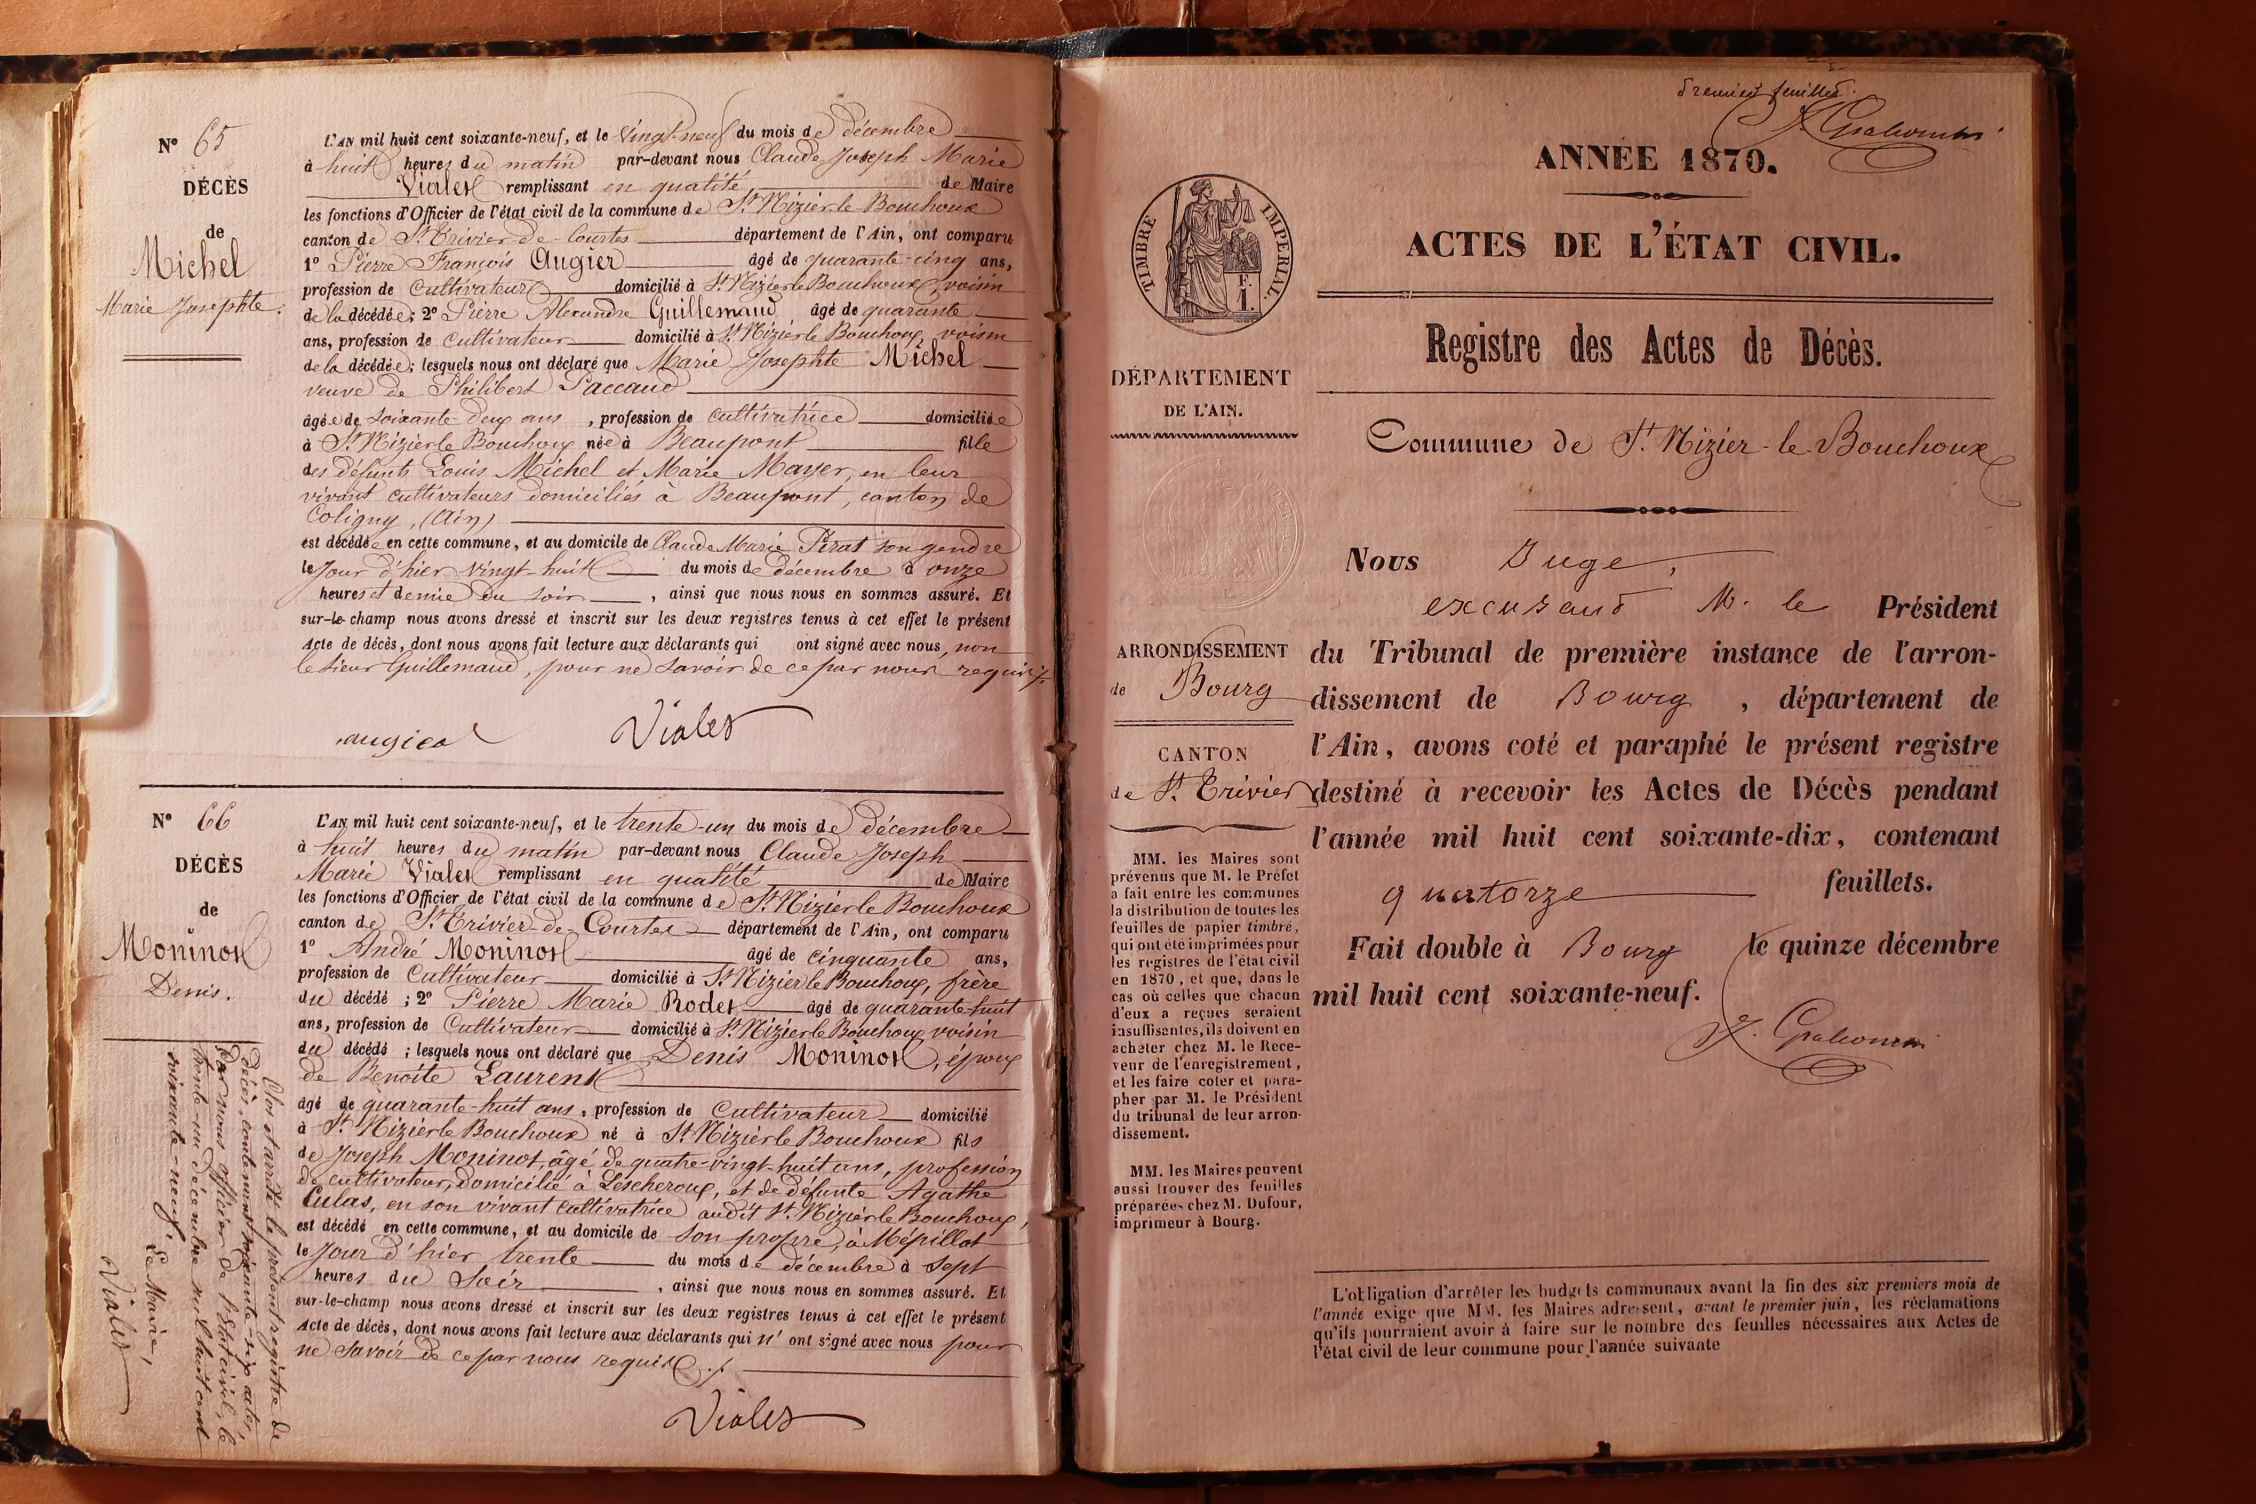 N° 65
DÉCÈS
de
Michel
Marie Josephte.
L'AN mil huit cent soixante-neuf, et le vingt-neuf du mois de décembre
à huit heures du matin par-devant nous Claude Joseph Marie
Vialet remplissant en qualité de Maire
les fonctions d'Officier de l'état civil de la commune de St Nizier le Bouchoux
canton de St Trivier-de-Courtes département de l'Ain, ont comparu
1° Pierre François Augier âgé de quarante-cinq ans,
profession de Cultivateur domicilié à St Nizier le Bouchoux, voisin
de la décédée; 2° Pierre Alexandre Guillemaud, âgé de quarante
ans, profession de Cultivateur domicilié à St Nizier le Bouchoux voisin
de la décédée; lesquels nous ont déclaré que Marie Josephte Michel
veuve de Philibert Paccaud
âgée de soixante-deux ans, profession de cultivatrice domiciliée
à St Nizier le Bouchoux née à Beaupont fille
des défunts Louis Michel et Marie Mayer, en leur
vivant cultivateurs domiciliés à Beaupont, canton de
Coligny, (Ain)
est décédée en cette commune, et au domicile de Claude Marie Pirat son gendre
le Jour d'hier vingt-huit du mois de décembre à onze
heures et demie du soir, ainsi que nous nous en sommes assuré. Et
sur-le-champ nous avons dressé et inscrit sur les deux registres tenus à cet effet le présent
Acte de décès, dont nous avons fait lecture aux déclarants qui ont signé avec nous, non
le sieur Guillemaud, pour ne savoir de ce par nous requis ./.
augier Vialet
N° 66
DÉCÈS
de
Moninot
Denis.
L'AN mil huit cent soixante-neuf, et le trente-un du mois de décembre
à huit heures du matin par-devant nous Claude Joseph
Marie Vialet remplissant en qualité de Maire
les fonctions d'Officier de l'état civil de la commune de St Nizier le Bouchoux
canton de St Trivier-de-Courtes département de l'Ain, ont comparu
1° André Moninot âgé de cinquante ans,
profession de Cultivateur domicilié à St Nizier le Bouchoux, frère
du décédé; 2° Pierre Marie Rodet âgé de quarante-huit
ans, profession de Cultivateur domicilié à St Nizier le Bouchoux voisin
du décédé; lesquels nous ont déclaré que Denis Moninot, époux
de Benoite Laurent
âgé de quarante-huit ans, profession de Cultivateur domicilié
à St Nizier le Bouchoux né à St Nizier le Bouchoux fils
de Joseph Moninot, âgé de quatre-vingt-huit ans, profession
de cultivateur, domicilié à Lescheroux, et de défunte Agathe
Culas, en son vivant cultivatrice audit St Nizier le Bouchoux,
est décédé en cette commune, et au domicile de son propre, à Mépillat
le Jour d'hier trente du mois de décembre à sept
heures du soir, ainsi que nous nous en sommes assuré. Et
sur-le-champ nous avons dressé et inscrit sur les deux registres tenus à cet effet le présent
Acte de décès, dont nous avons fait lecture aux déclarants qui n'ont signé avec nous pour
ne savoir de ce par nous requis ./.
Vialet
Clos et arrêté le présent registre de
Décès, contenant soixante-six actes,
par nous officier de l'état civil, le
trente-un décembre mil huit cent
soixante-neuf.
Le Maire,
Vialet
Premier feuillet.
ANNÉE 1870.
ACTES DE L'ÉTAT CIVIL.
Registre des Actes de Décès.
Commune de St Nizier-le-Bouchoux
TIMBRE IMPERIAL.
F.
1.
DÉPARTEMENT
DE L'AIN.
ARRONDISSEMENT
de Bourg
CANTON
de St Trivier
MM. les Maires sont
prévenus que M. le Préfet
a fait entre les communes
la distribution de toutes les
feuilles de papier timbré,
qui ont été imprimées pour
les registres de l'état civil
en 1870, et que, dans le
cas où celles que chacun
d'eux a reçues seraient
insuffisantes, ils doivent en
acheter chez M. le Rece-
veur de l'enregistrement,
et les faire coter et para-
pher par M. le Président
du tribunal de leur arron-
dissement.
MM. les Maires peuvent
aussi trouver des feuilles
préparées chez M. Dufour,
imprimeur à Bourg.
Nous Juge,
excusant M. le Président
du Tribunal de première instance de l'arron-
dissement de Bourg, département de
l'Ain, avons coté et paraphé le présent registre
destiné à recevoir les Actes de Décès pendant
l'année mil huit cent soixante-dix, contenant
quatorze feuillets.
Fait double à Bourg le quinze décembre
mil huit cent soixante-neuf.
L'obligation d'arrêter les budgets communaux avant la fin des six premiers mois de
l'année exige que MM. les Maires adressent, avant le premier juin, les réclamations
qu'ils pourraient avoir à faire sur le nombre des feuilles nécessaires aux Actes de
l'état civil de leur commune pour l'année suivante